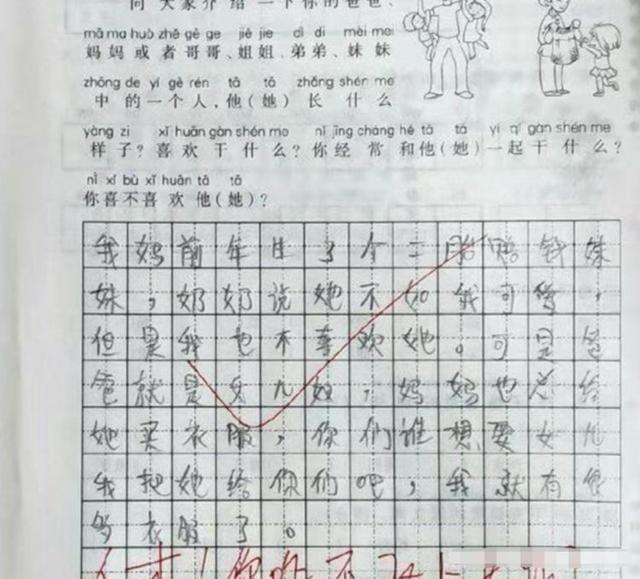 向大家介绍一下你的爸爸、
mā ma huò zhě gē ge jiě jie dì di mèi mei
妈妈或者哥哥、姐姐、弟弟、妹妹
zhōng de yí gè rén tā tā zhǎng shén me
中的一个人,他(她)长什么
yàng zi xǐ huān gàn shén me nǐ jīng cháng hé tā tā yì qǐ gàn shén me
样子?喜欢干什么?你经常和他(她)一起干什么?
nǐ xǐ bù xǐ huān tā tā
你喜不喜欢他(她)?
我妈前年生了个二胎赔钱妹
妹，奶奶说她不如我可爱，
但是我也不喜欢她。可是爸
爸就是女儿奴，妈妈也总给
她买衣服，你们谁想要女儿
我把她给你们吧，我就有很
多衣服了。